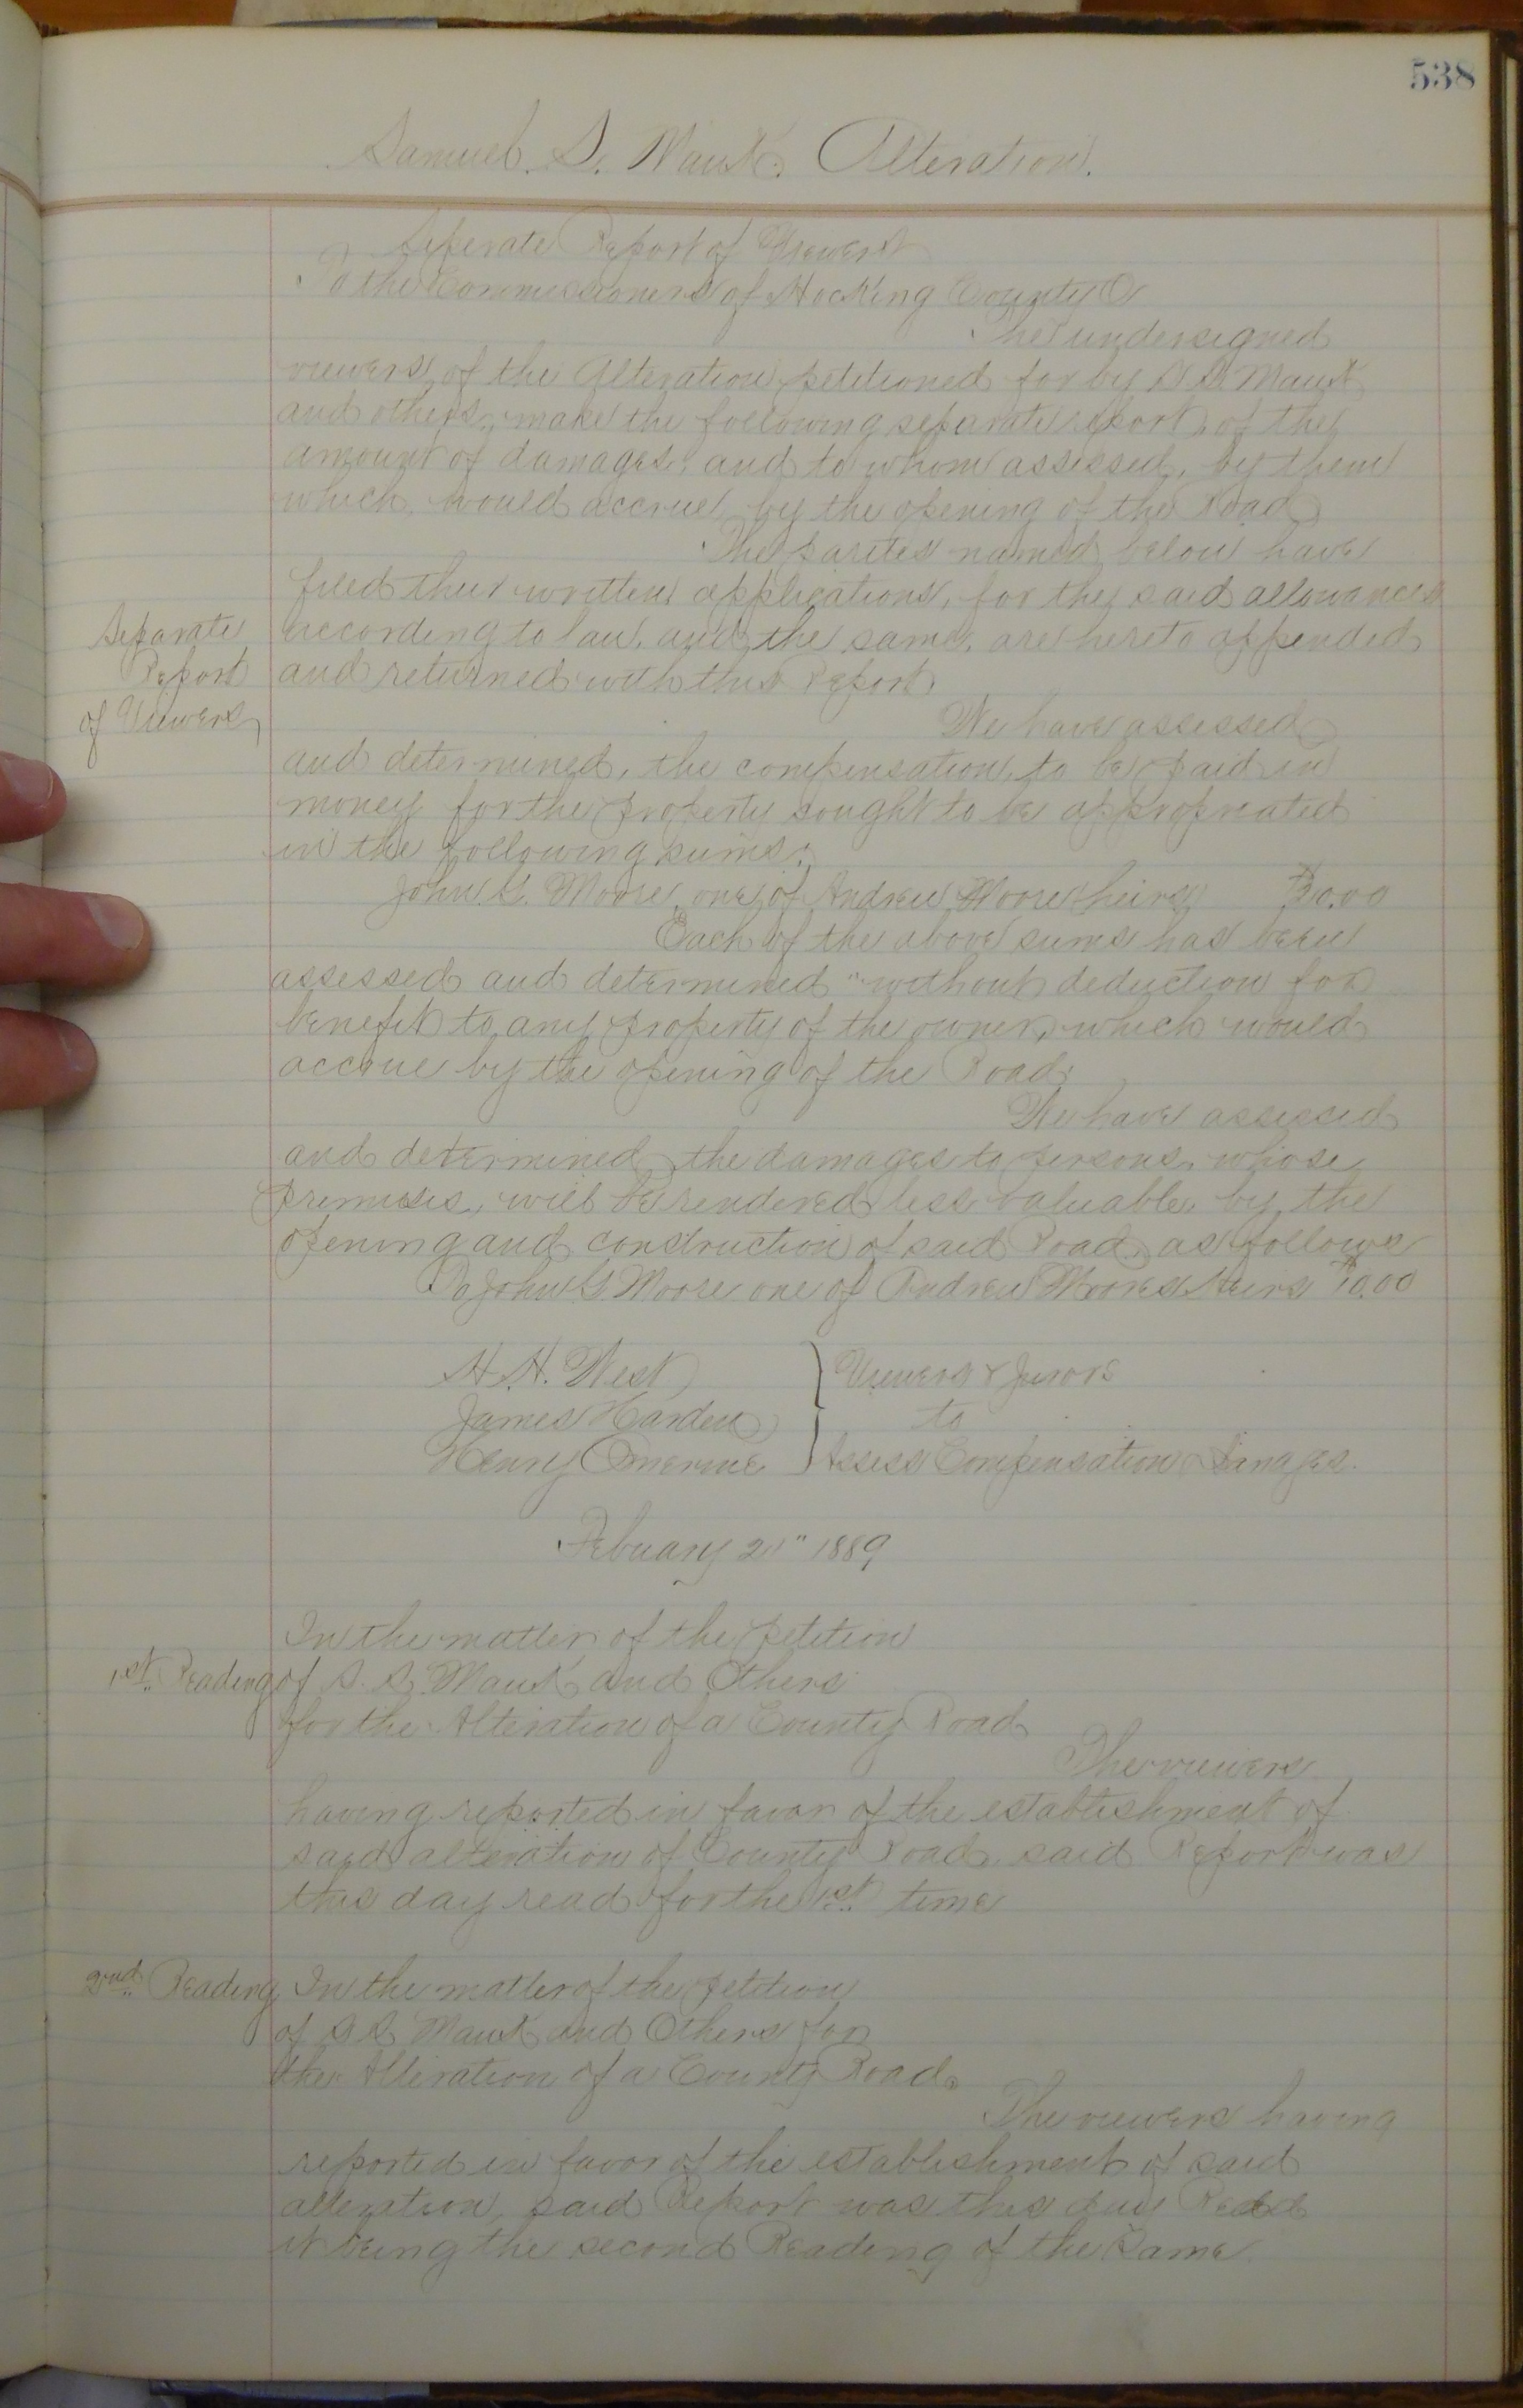 538
Samuel. S. Mauk. Alteration.
Seperate Report of Viewers
To the Commissioners of Hocking County O
The undersigned
viewers of the Alteration petitioned for by S. S. Mauk
and others, make the following separate report, of the
amount of damages, and to whom assessed, by them
which would accrue, by the opening of the Road
The parites named below have
filed their written applications, for the said allowances
Separate
according to law, and the same, are hereto appended
Report
and returned with this Report
of Viewers
We have assessed
and determined, the compensation, to be paid in
money for the property sought to be appropreated
in the following sums:
John. G. Moore, one of Andrew Moore heirs
Each of the above sums has been
assessed and determined "without deduction for
benefit to any property of the owner, which would
accrue by the opening of the Road.
We have assessed
and determined the damages to persons, whose
premises, will be rendered less valuable, by the
opening and construction of said Road, as follows
To John G. Moore one of Andrew Moores Heirs $10.00
H. H. West } Viewers & Jurors
James Harden to
Henry Assess Compensation & Damages.
Febuary 21" 1889
In the matter of the petition
1st. Reading of S. S. Mauk and Others
for the Alteration of a County Road
The viewers
having reported in favor of the establishment of
said alteration of County Road, said Report was
this day read for the 1st. time
2nd. Reading In the matter of the petition
of S S Mauk and Others for
the Alteration of a County Road.
The viewers having
reported in favor of the establishment of said
alteration, said Report was this day Read
it being the second Reading of the Same.